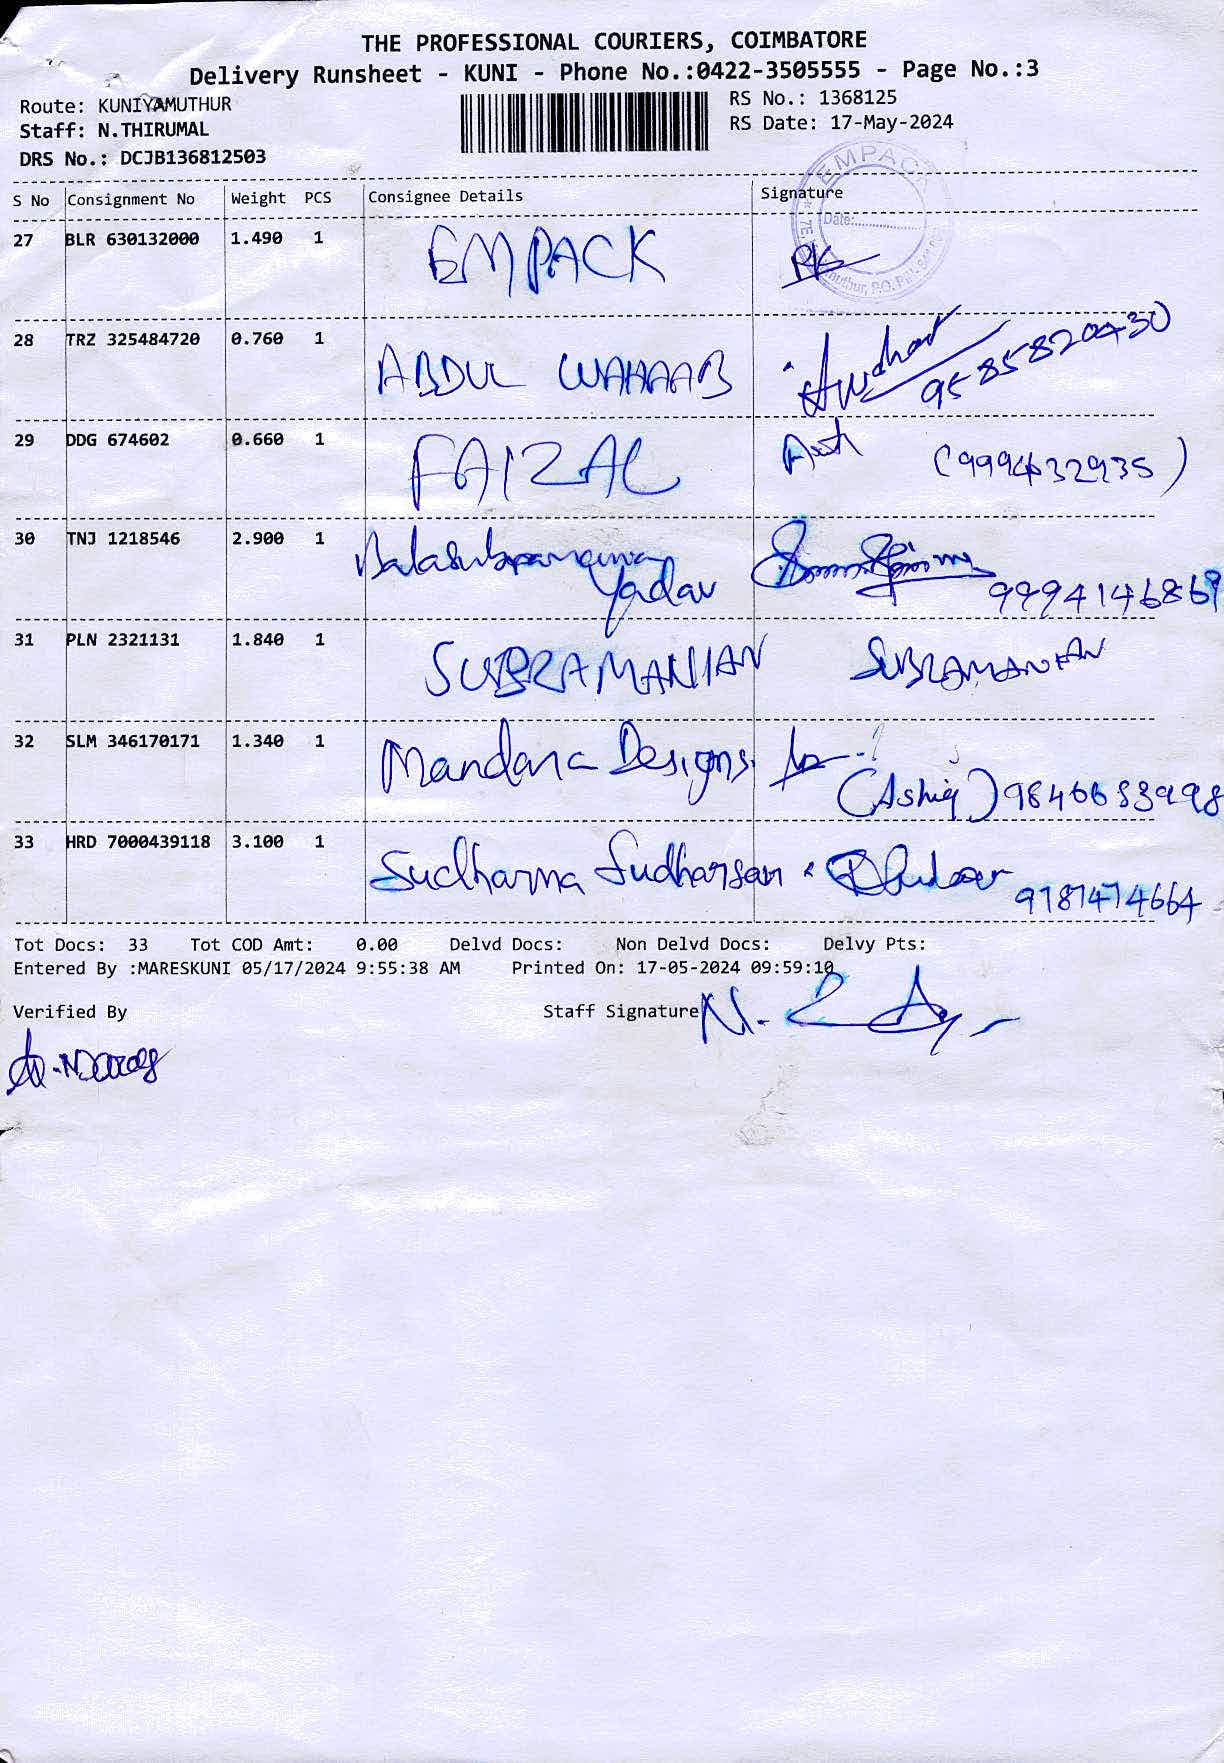 THE PROFESSIONAL COURIERS, COIMBATORE
Delivery Runsheet - KUNI - Phone No.:0422-3505555 - Page No.:3
Route: KUNIYAMUTHUR
RS No.: 1368125
Staff: N.THIRUMAL
RS Date: 17-May-2024
DRS No.: DCJB136812503
EMPACK
S No Consignment No Weight PCS Consignee Details Signature
Date:
27 BLR 630132000 1.490 1 EMPACK
28 TRZ 325484720 0.760 1 ABDUL WAHAAB 9585820430
29 DDG 674602 0.660 1 FAIZAL (9994632935)
30 TNJ 1218546 2.900 1 Balasubramaniya
Yadav 9994146869
31 PLN 2321131 1.840 1 SUBRAMANIAN SUBRAMANIAN
32 SLM 346170171 1.340 1 Mandana Designs
(Ashiq) 9846683998
33 HRD 7000439118 3.100 1 Sudharma Sudharsan 9787474664
Tot Docs: 33 Tot COD Amt: 0.00 Delvd Docs: Non Delvd Docs: Delvy Pts:
Entered By :MARESKUNI 05/17/2024 9:55:38 AM Printed On: 17-05-2024 09:59:10
Verified By Staff Signature